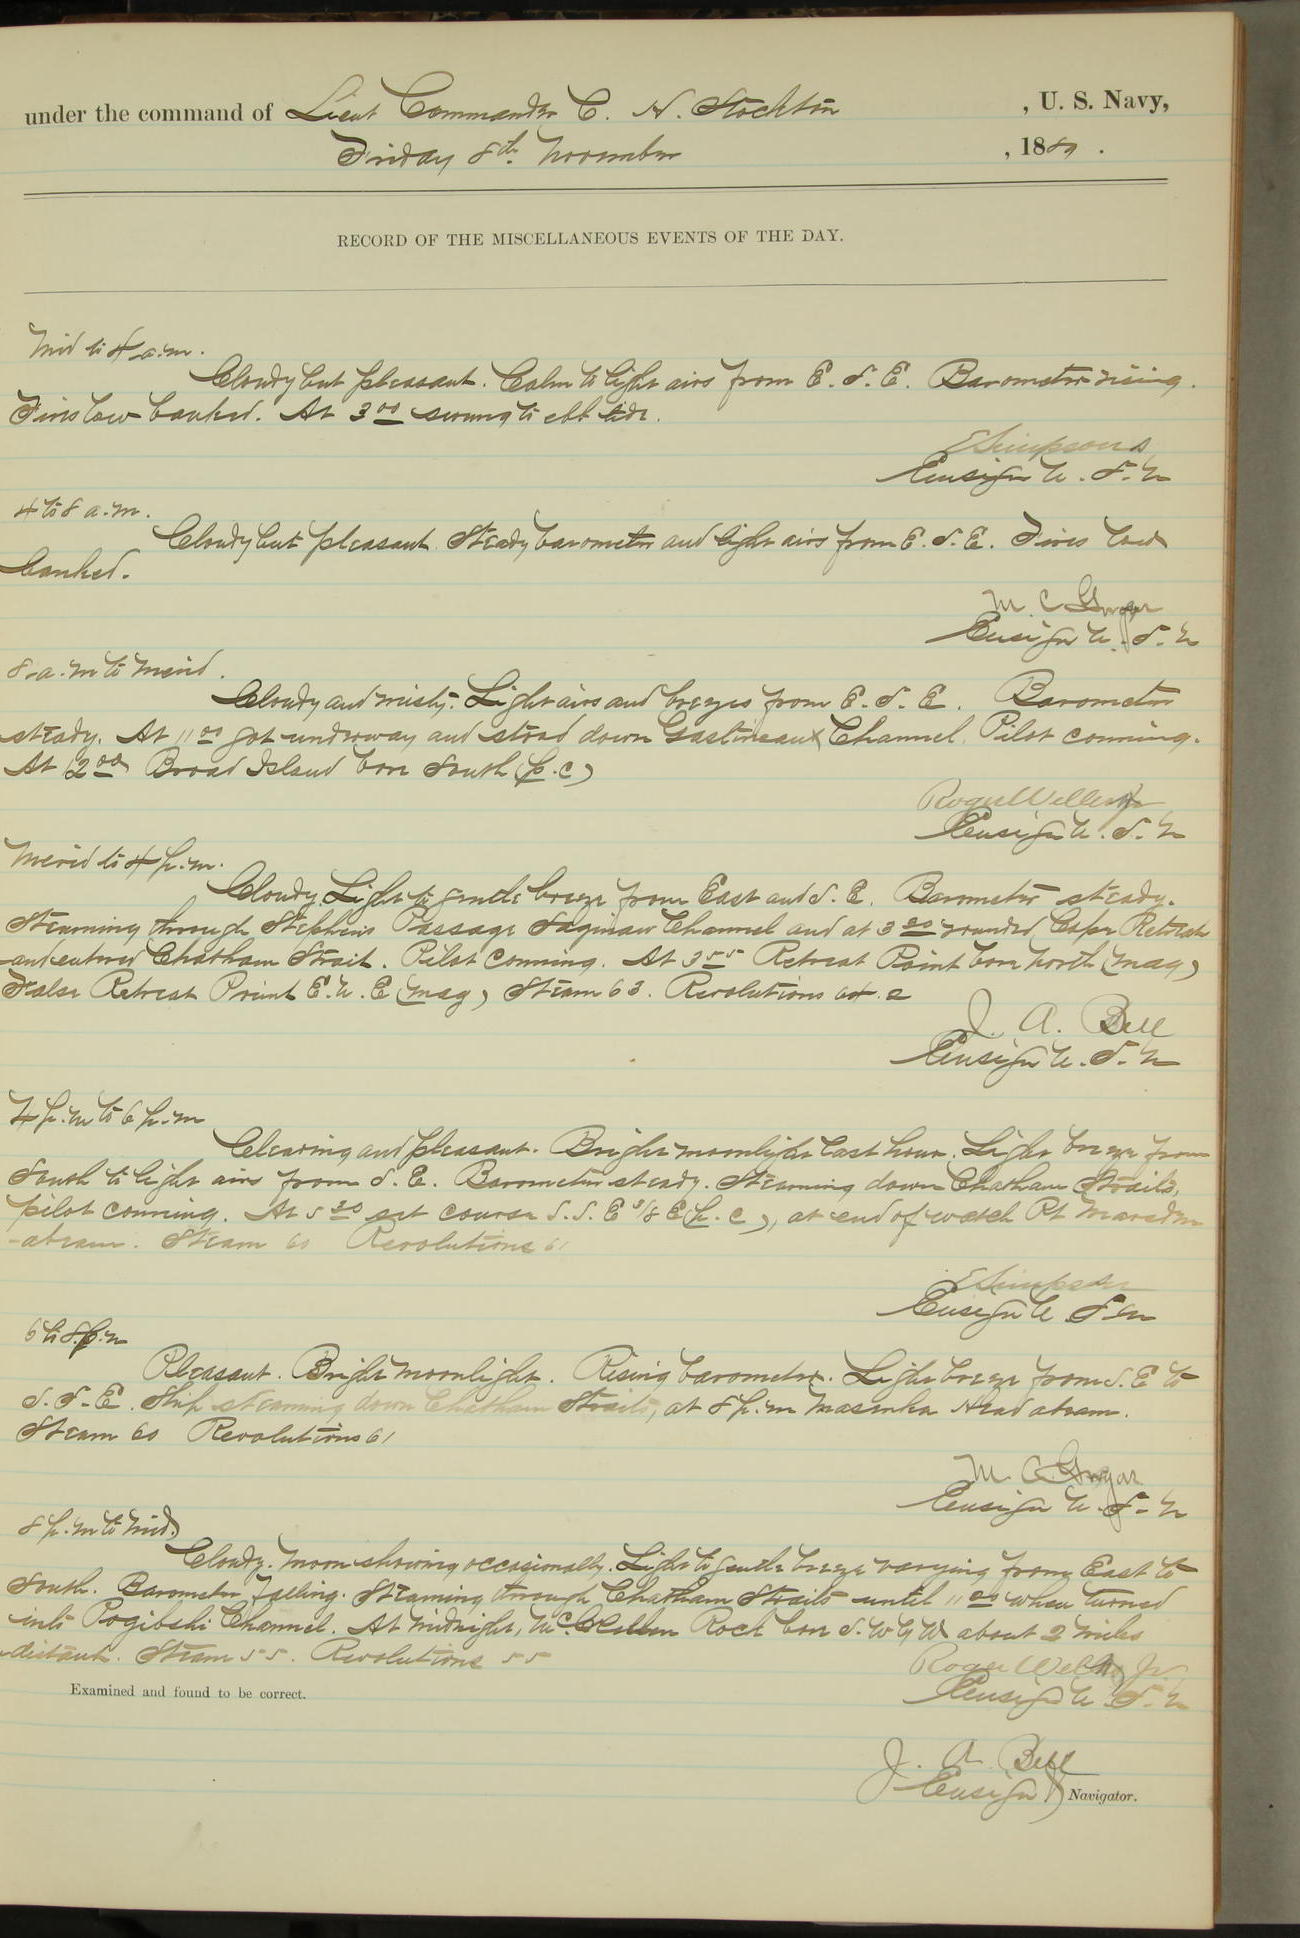 under the command of Lieut Commander C. H. Stockton, U. S. Navy,
Friday 8th November, 1889.
RECORD OF THE MISCELLANEOUS EVENTS OF THE DAY.
Mid to 4 a.m.
Cloudy but pleasant. Calm to light airs from E. S. E. Barometer rising.
Fires low banked. At 3 00 swung to ebb tide.
E Simpson
Ensign U. S. N
4 to 8 a.m.
Cloudy but pleasant. Steady barometer and light airs from E. S. E. Fires low
banked.
M. C Gorgas
Ensign U. S. N
8 a.m to Merid.
Cloudy and misty. Light airs and breezes from E. S. E. Barometer
steady. At 11 00 got underway and stood down Gastineaux Channel. Pilot conning.
At 12 00 Broad Island bore South (p.c)
Roger Welles Jr
Ensign U. S. N
Merid to 4 p.m.
Cloudy. Light to gentle breeze from East and S. E. Barometer steady.
Steaming through Stephens Passage Saginaw Channel and at 3 20 rounded Cape Retreat
and entered Chatham Strait. Pilot conning. At 3 55 Retreat Point bore North (mag)
False Retreat Point E. N. E (mag) Steam 63. Revolutions 64.2
J. A. Bell
Ensign U. S. N
4 p.m to 6 p.m
Clearing and pleasant. Bright moonlight last hour. Light breeze from
South to light airs from S. E. Barometer steady. Steaming down Chatham Straits,
pilot conning. At 5 30 set course S. S. E 3/8 E (p. c), at end of watch Pt Marsden
abeam. Steam 60 Revolutions 61
E Simpson
Ensign U S N
6 to 8 p.m
Pleasant. Bright moonlight. Rising barometer. Light breeze from S. E to
S. S. E. Ship steaming down Chatham Straits, at 8 p.m Head abeam.
Steam 60 Revolutions 61
M. C. Gorgas
Ensign U. S. N
8 p.m to Mid.
Cloudy. Moon showing occasionally. Light to gentle breeze varying from East to
South. Barometer falling. Steaming through Chatham Straits until 11 00 when turned
into Pogibshi Channel. At midnight, McClellan Rock bore S. W by W about 2 miles
distant. Steam 55. Revolutions 55
Roger Welles, Jr.
Ensign U. S. N
Examined and found to be correct.
J. A. Bell
Ensign Navigator.